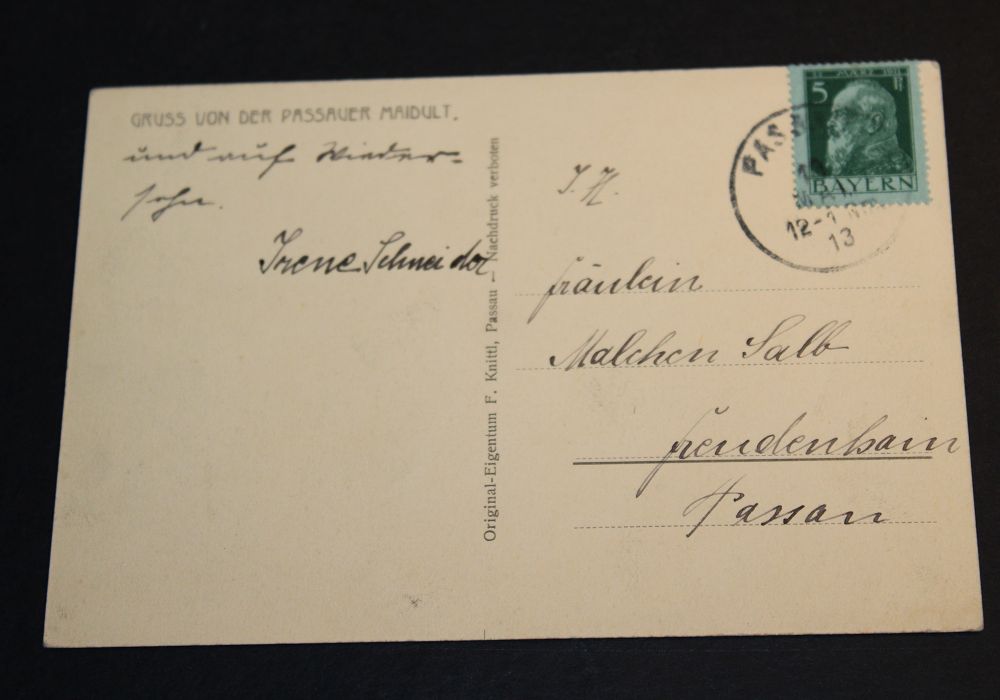 GRUSS VON DER PASSAUER MAIDULT.
und auf Wieder-
sehn.
Irene Schneider
Original-Eigentum F. Knittl, Passau – Nachdruck verboten
12. MÄRZ 1911
5 Pf
BAYERN
PASSAU
12-1 Nm.
13
J. H.
Fräulein
Malchen Salb
Freudenhain
Passau